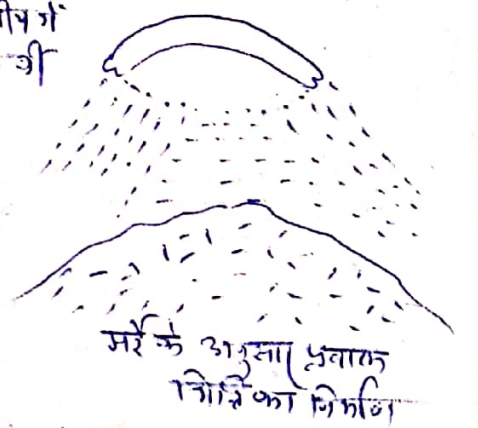 में
थी
मर्रे के अनुसार प्रवाल
भित्ति का निर्माण